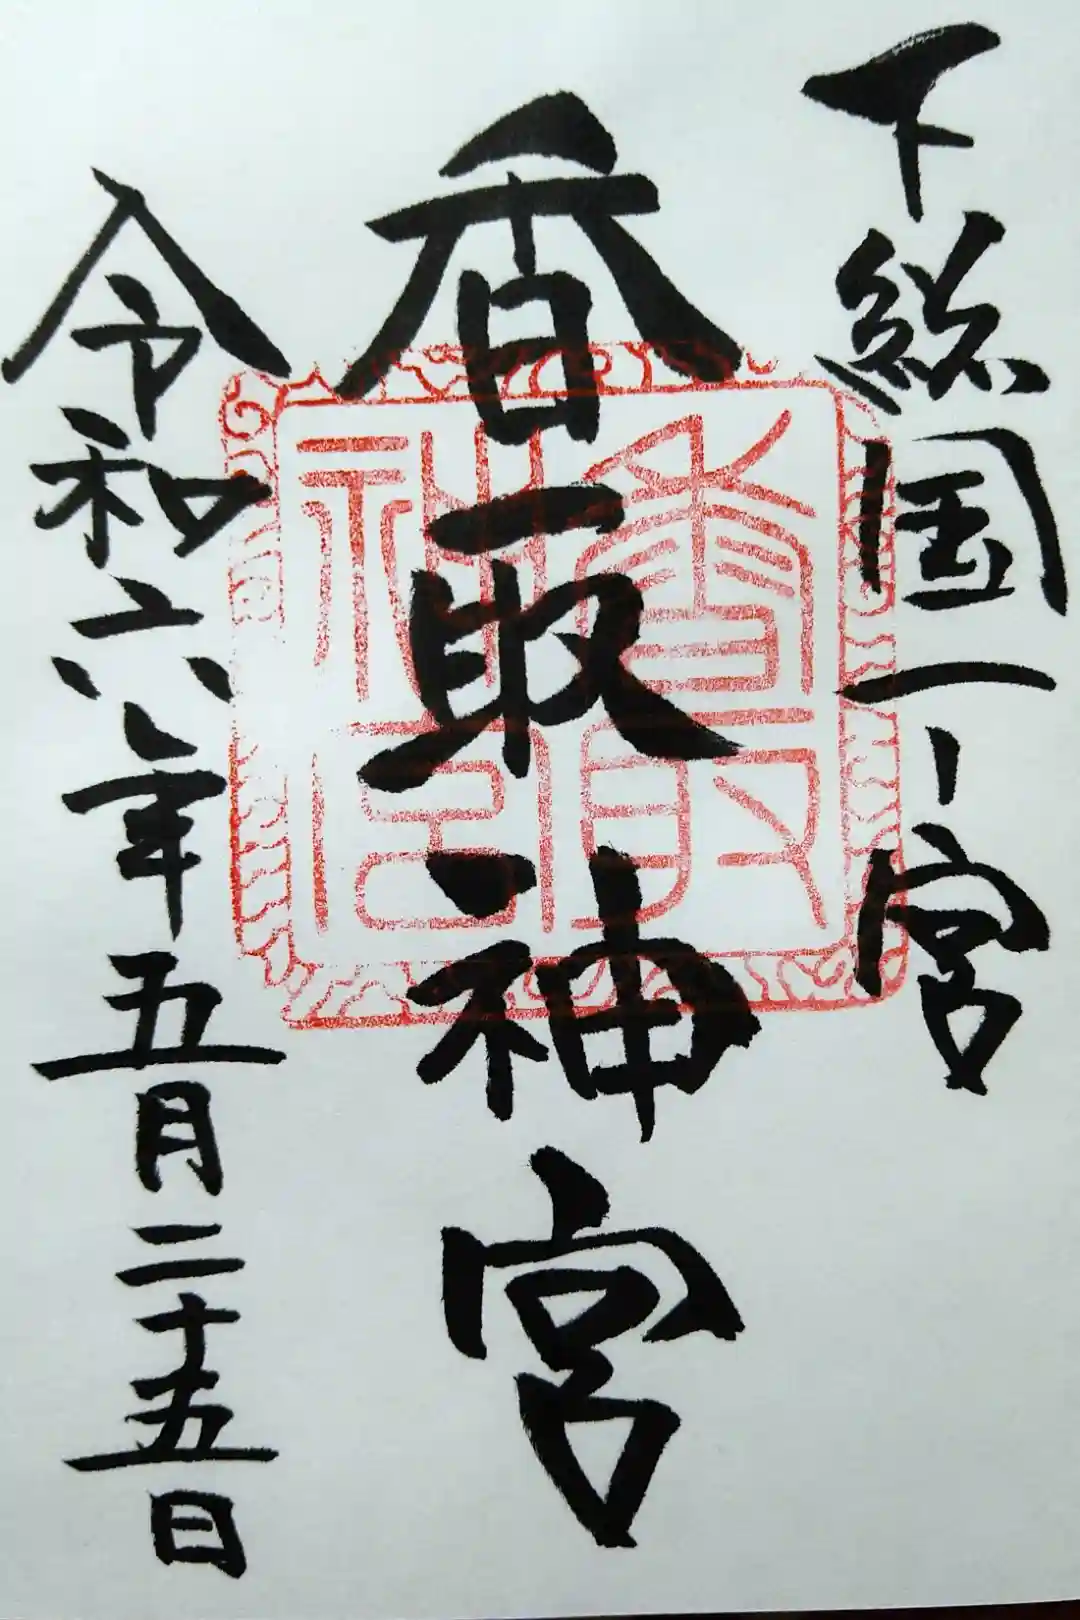 下総国一宮
香取神宮
令和六年五月二十五日
香取
神宮